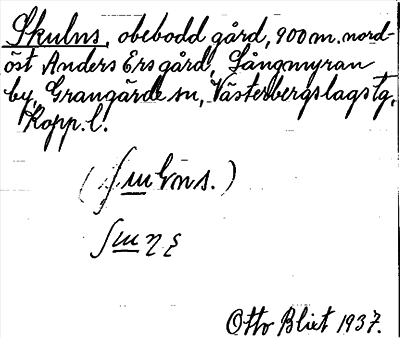 Skulns, obebodd gård, 900 m. nord-
öst Anders Ersgård, Långmyran
by, Grangärde sn, Västerbergslags tg,
Kopp. l.
Otto Blixt 1937.